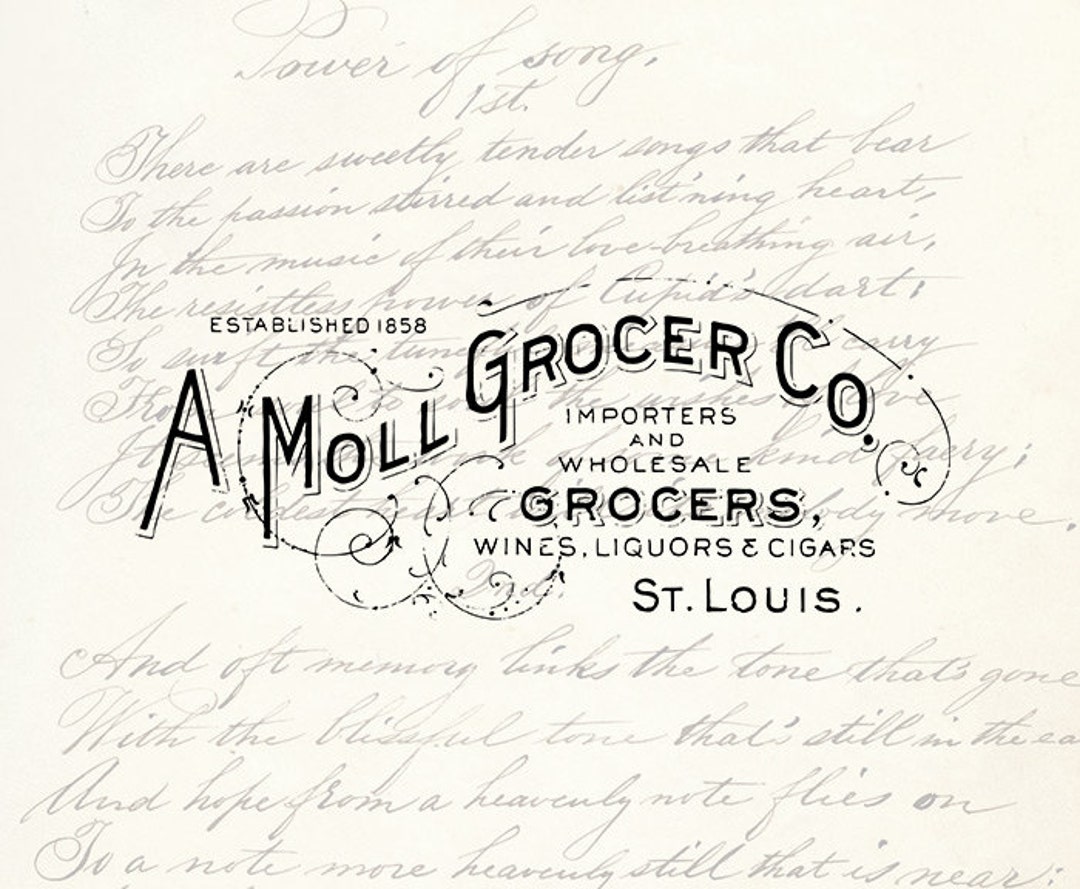 Power of song.
1st.
There are sweetly tender songs that bear
To the passion stirred and list'ning heart,
In the music of their love-breathing air,
The resistless power of Cupid's dart;
So swift the carry
the wishes
The coldest body move.
ESTABLISHED 1858
A MOLL GROCER CO.
IMPORTERS
AND
WHOLESALE
GROCERS,
WINES, LIQUORS & CIGARS
ST. LOUIS.
2nd.
And oft memory links the tone that's gone
With the blissful tone that's still in the ea
And hope from a heavenly note flies on
To a note more heavenly still that is near: